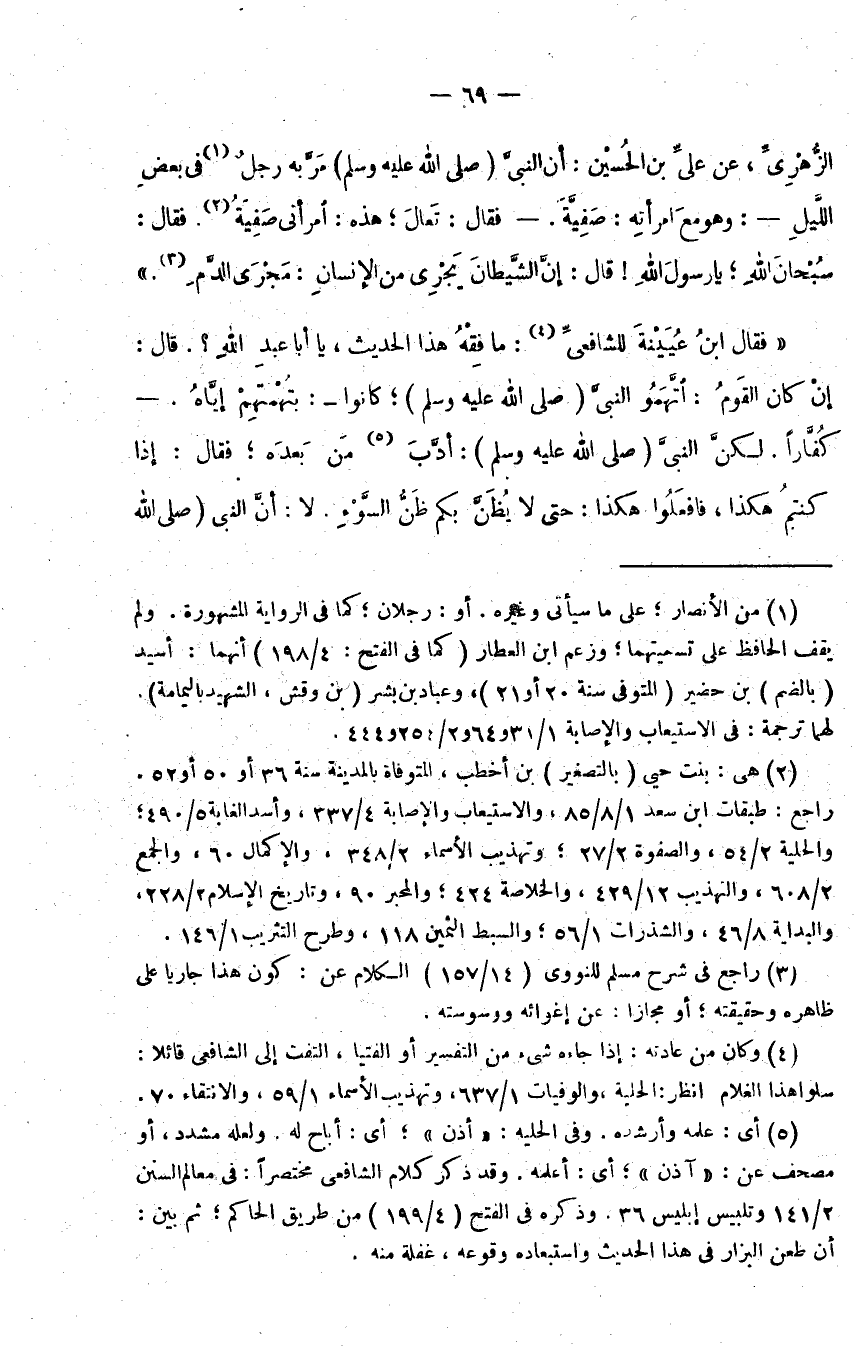 — ٦٩ —
الزُّهْرِىِّ ، عن علىِّ بن الحُسيْن : أن النبىَّ ( صلى الله عليه وسلم ) مَرَّ به رجلٌ (١) فى بعضِ
اللَّيلِ — : وهو مع امرأتِه : صَفِيَّةَ . — فقال : تَعالَ ؛ هذه : أمرأتى صَفِيَةُ (٢) . فقال :
سُبْحانَ اللهِ ؛ يا رسولَ اللهِ ! قال : إنَّ الشَّيطانَ يَجْرِى من الإنسانِ : مَجْرَى الدَّم (٣) . »
« فقال ابنُ عُيَيْنةَ للشافعىِّ (٤) : ما فِقْهُ هذا الحديث ، يا أبا عبدِ اللهِ ؟ . قال :
إنْ كان القَومُ : أتَّهَمُو النبىَّ ( صلى الله عليه وسلم ) ؛ كانوا — : بتُهْمتِهِمْ إيَّاهُ . —
كُفَّاراً . لـكنَّ النبىَّ ( صلى الله عليه وسلم ) : أدَّبَ (٥) مَن بَعدَه ؛ فقال : إذا
كنتمُ هكذا ، فافعَلُوا هكذا : حتى لا يُظَنَّ بكم ظَنُّ السوَّءِ . لا : أنَّ النبى ( صلى الله
(١) من الأنصار ؛ على ما سيأتى وغيره . أو : رجلان ؛ كما فى الرواية المشهورة . ولم
يقف الحافظ على تسميتهما ؛ وزعم ابن العطار ( كما فى الفتح : ١٩٨/٤ ) أنهما : أسيد
( بالضم ) بن حضير ( المتوفى سنة ٢٠ أو ٢١ ) ، وعباد بن بشر ( بن وقش ، الشهيد باليمامة ) .
لهما ترجمة : فى الاستيعاب والإصابة ٣١/١ و٦٤ و٢٥٠/٢ و٤٤٤ .
(٢) هى : بنت حيى ( بالتصغير ) بن أخطب ، المتوفاة بالمدينة سنة ٣٦ أو ٥٠ أو ٥٢ .
راجع : طبقات ابن سعد ٨٥/٨/١ ، والاستيعاب والإصابة ٣٣٧/٤ ، وأسد الغابة ٤٩٠/٥ ؛
والحلية ٥٤/٢ ، والصفوة ٢٧/٢ ؛ وتهذيب الأسماء ٣٤٨/٢ ، والإكمال ٦٠ ، والجمع
٦٠٨/٢ ، والتهذيب ٤٢٩/١٢ ، والخلاصة ٤٢٤ ؛ والمحبر ٩٠ ، وتاريخ الإسلام ٢٢٨/٢ ،
والبداية ٤٦/٨ ، والشذرات ٥٦/١ ؛ والسبط الثمين ١١٨ ، وطرح التثريب ١٤٦/١ .
(٣) راجع فى شرح مسلم للنووى ( ١٥٧/١٤ ) الـكلام عن : كون هذا جاريا على
ظاهره وحقيقته ؛ أو مجازا : عن إغوائه ووسوسته .
(٤) وكان من عادته : إذا جاءه شىء من التفسير أو الفتيا ، التفت إلى الشافعى قائلا :
سلوا هذا الغلام انظر : الحلية ، والوفيات ٦٣٧/١ ، وتهذيب الأسماء ٥٩/١ ، والانتقاء ٧٠ .
(٥) أى : علمه وأرشده . وفى الحليه : « أذن » ؛ أى : أباح له . ولعله مشدد ، أو
مصحف عن : « آذن » ؛ أى : أعلمه . وقد ذكر كلام الشافعى مختصراً : فى معالم السنن
١٤١/٢ وتلبيس إبليس ٣٦ . وذكره فى الفتح ( ١٩٩/٤ ) من طريق الحاكم ؛ ثم بين :
أن طعن البزار فى هذا الحديث واستبعاده وقوعه ، غفلة منه .